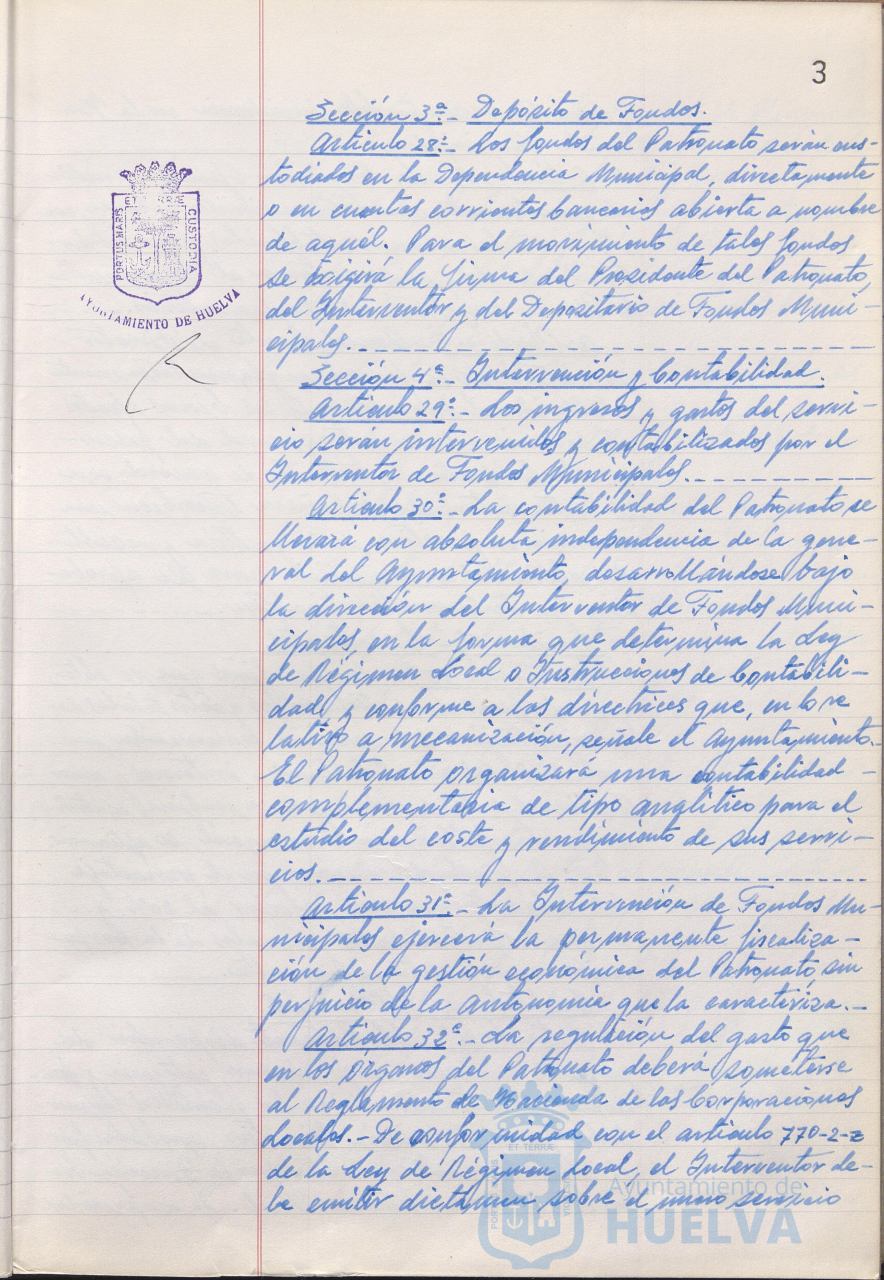 3
Sección 3ª.- Depósito de Fondos.
Artículo 28º.- Los fondos del Patronato serán cus-
todiados en la Dependencia Municipal, directamente
o en cuentas corrientes bancarias abierta a nombre
de aquél. Para el movimiento de tales fondos
se exigirá la firma del Presidente del Patronato,
del Interventor y del Depositario de Fondos Muni-
cipales.
Sección 4ª.- Intervención y Contabilidad.
Artículo 29º.- Los ingresos y gastos del servi-
cio serán intervenidos y contabilizados por el
Interventor de Fondos Municipales.
Artículo 30º.- La contabilidad del Patronato se
llevará con absoluta independencia de la gene-
ral del Ayuntamiento, desarrollándose bajo
la dirección del Interventor de Fondos Muni-
cipales, en la forma que determina la Ley
de Régimen Local o Instrucciones de Contabili-
dad y conforme a las directrices que, en lo re
lativo a mecanización, señale el Ayuntamiento.-
El Patronato organizará una contabilidad -
complementaria de tipo analítico para el
estudio del coste y rendimiento de sus servi-
cios.
Artículo 31º.- La Intervención de Fondos Mu-
nicipales ejercerá la permanente fiscaliza-
ción de la gestión económica del Patronato, sin
perjuicio de la autonomía que la caracteriza.-
Artículo 32º.- La regulación del gasto que
en los órganos del Patronato deberá someterse
al Reglamento de Hacienda de las Corporaciones
Locales.- De conformidad con el artículo 770-2-
de la Ley de Régimen Local, el Interventor de-
be emitir dictamen sobre el nuevo servicio
PORTUS MARIS
CUSTODIA
AYUNTAMIENTO DE HUELVA
ET TERRÆ
Ayuntamiento de
HUELVA